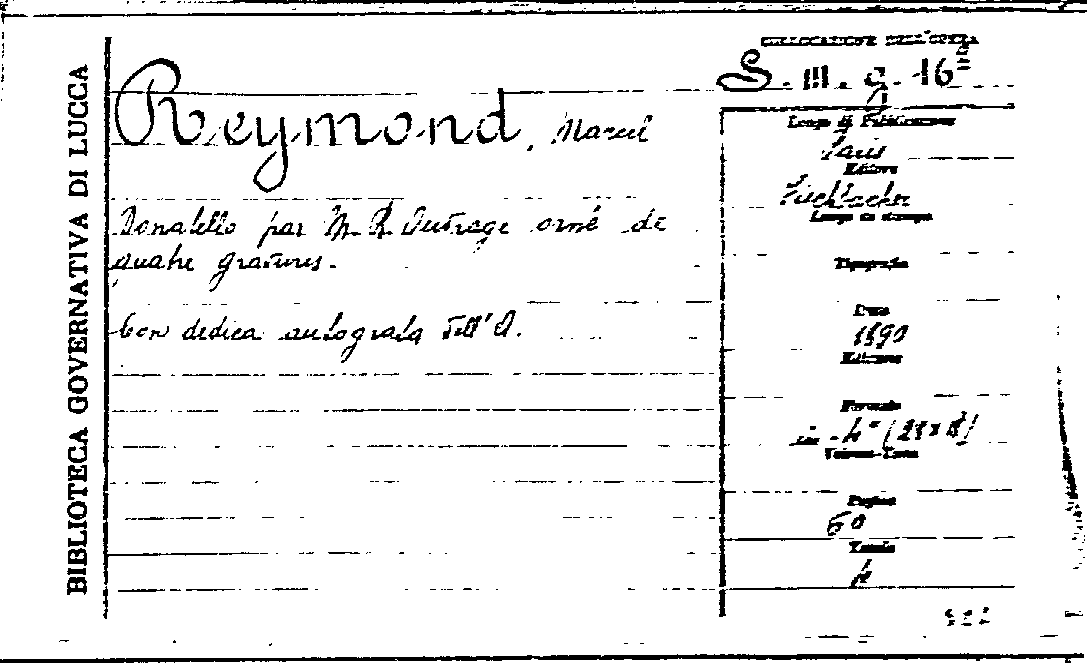 BIBLIOTECA GOVERNATIVA DI LUCCA
COLLOCAZIONE DELL'OPERA
S. m. g. 16
Reymond, Marcel
Donatello par M. R. Ouvrage orné de
quatre gravures.
Con dedica autografa dell'A.
Luogo di Pubblicazione
Paris
Editore
Fischbacher
Luogo di stampa
Tipografia
Data
1890
Edizione
Formato
in-4° (
Volume-Tomo
Pagine
60
Tavole
4